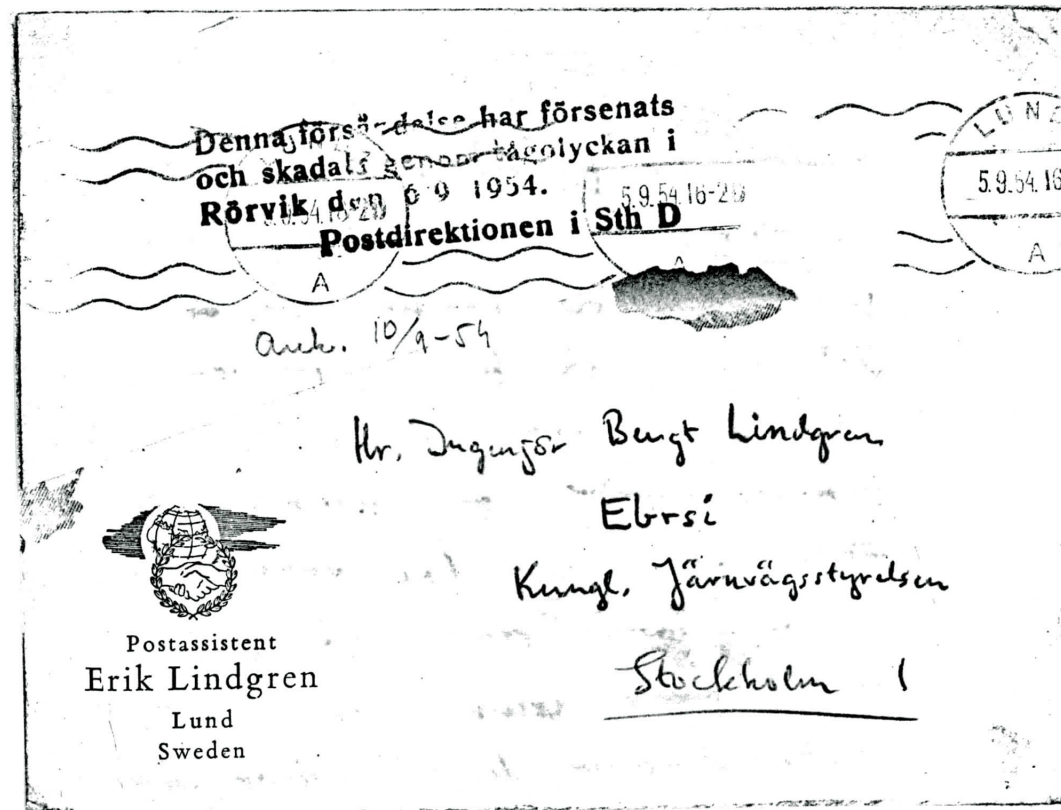 Denna försändelse har försenats
och skadats genom tågolyckan i
Rörvik den 6 9 1954.
Postdirektionen i Sth D
5.9.54.16-20
A
5.9.54.16-20
A
LUN
5.9.54.16
A
ank. 10/9-54
Hr. Ingenjör Bengt Lindgren
Ebrsi
Kungl. Järnvägsstyrelsen
Stockholm 1
Postassistent
Erik Lindgren
Lund
Sweden